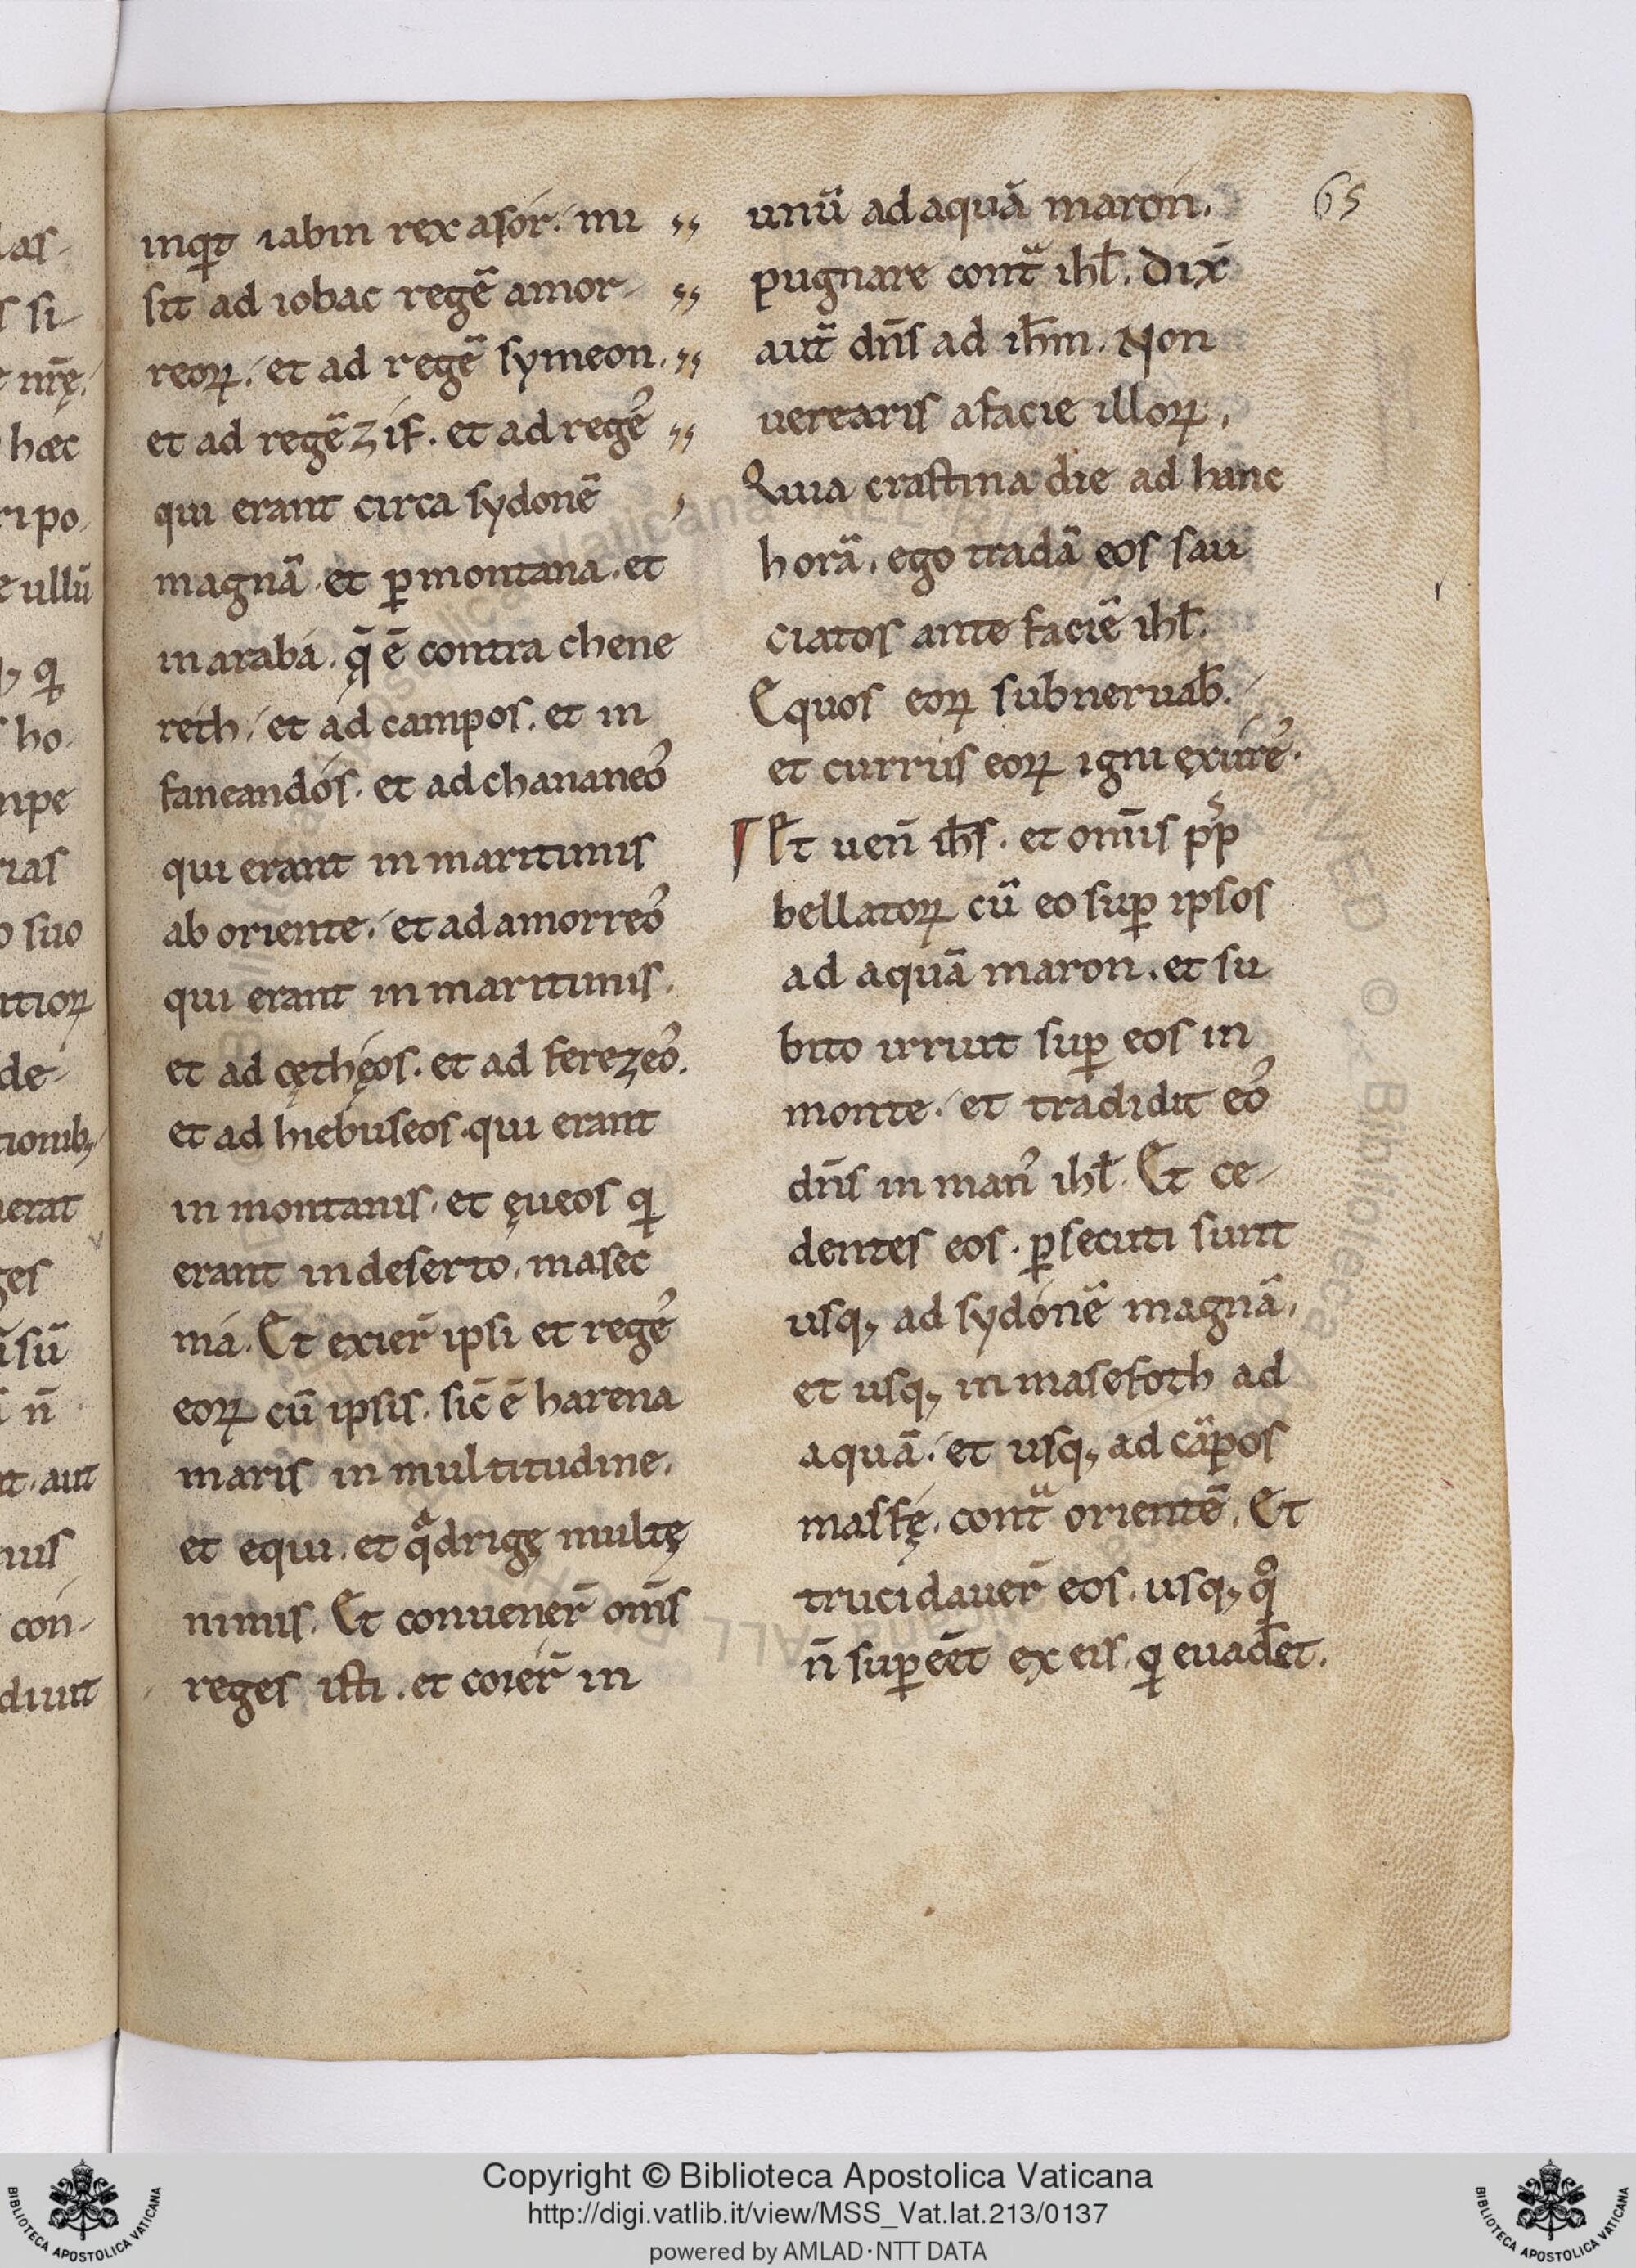 65
inq̇t iabin rex asór. mi
sit ad iobac regē amor-
reoꝝ. et ad regē symeon.
et ad regē zif. et ad regeʼ
qui erant circa sydonē
magnā. et ꝑ montana. et
in arabá. q̄ ē contra chene
reth. et ad campos. et in
faneandós. et ad chananeoʼ
qui erant in maritimis
ab oriente. et ad amorreoʼ
qui erant in maritimis.
et ad cęthęos. et ad ferezeoʼ.
et ad hiebuseos. qui erant
in montanis. et ęueos qi
erant in deserto. masec
má. Et exier̄ ipsi et regeʼ
eoꝝ cū ipsis. sic̄ ē harena
maris in multitudine.
et equi. et qͣdrigę multę
nimis. Et conuener̄ om̄s
reges isti. et coier̄ in
unū ad aquā maron.
pugnare contᷓ ihl̄. Dix̄
aut̄ dn̄s ad ih̄m. Non
uerearis a facie illoꝝ.
Quia crastina die ad hanc
horā. ego tradā eos sau
ciatos ante faciē ihl̄.
Equos eoꝝ subneruab̄.
et currus eoꝝ igni exureʼ.
Et uen̄ ih̄s. et om̄is pp̄s
bellatoꝝ cū eo suꝑ ipsos
ad aquā maron. et su
bito irruit suꝑ eos in
monte. et tradidit eoʼ
dn̄s in manʼ ihl̄. Et ce-
dentes eos. ꝑsecuti sunt
usq; ad sydónē magnā.
et usq; in masefoth ad
aquā. et usq; ad cāpos
masfę. contᷓ orientē. Et
trucidauer̄ eos. usq; qͦ
n̄ suꝑeēt ex eis. qi euad̄et.
as-
s si-
nr̄ę.
hæc
ri po
e ullū
ho.
npe
rias
o suo
itioꝝ
de-
tionib;
uerat
ges
sū
n̄
t. aut
nus
con-
diunt
Copyright © Biblioteca Apostolica Vaticana
http://digi.vatlib.it/view/MSS_Vat.lat.213/0137
powered by AMLAD·NTT DATA
BIBLIOTECA APOSTOLICA VATICANA
BIBLIOTECA APOSTOLICA VATICANA